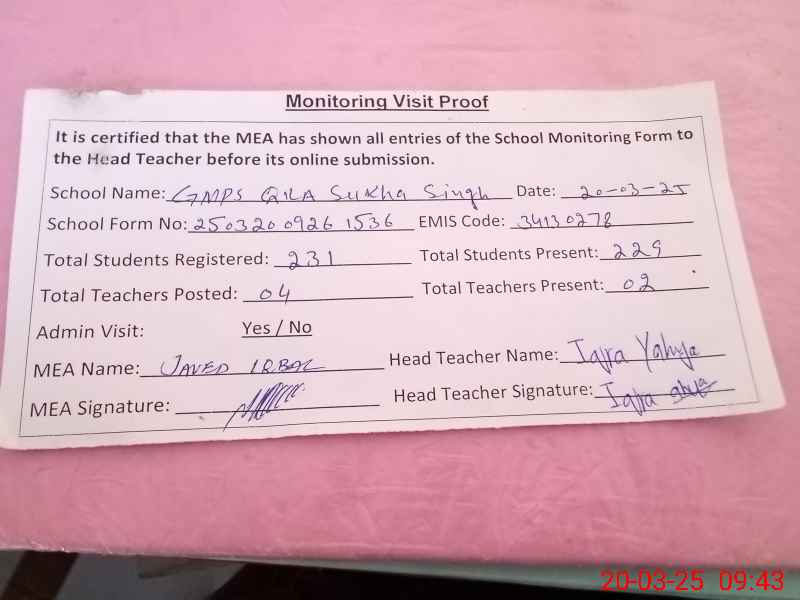 Monitoring Visit Proof
It is certified that the MEA has shown all entries of the School Monitoring Form to
the Head Teacher before its online submission.
School Name: GMPS QILA Sukha Singh Date: 20-03-25
School Form No: 250320 0926 1536 EMIS Code: 34130278
Total Students Registered: 231 Total Students Present: 229
Total Teachers Posted: 04 Total Teachers Present: 02
Admin Visit: Yes / No
MEA Name: JAVED IQBAL Head Teacher Name: Iqra Yahya
MEA Signature: Head Teacher Signature: Iqra
20-03-25 09:43